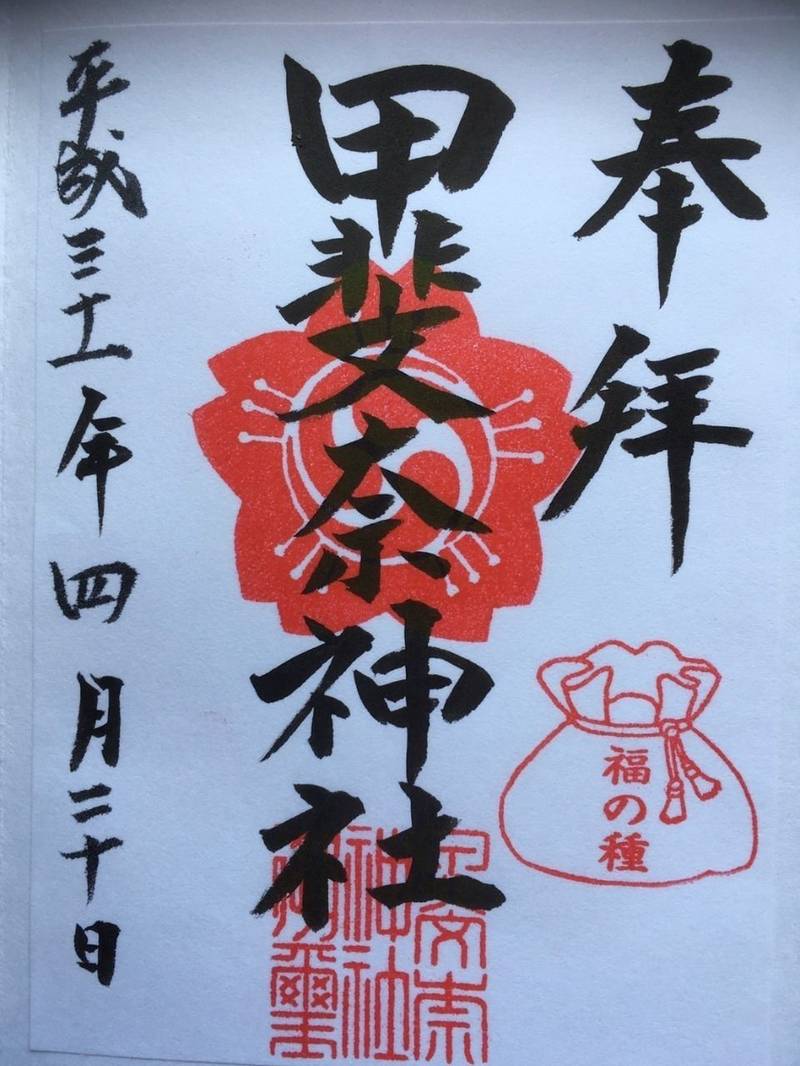 奉拝
福の種
甲斐奈神社
平成三十一年四月二十日